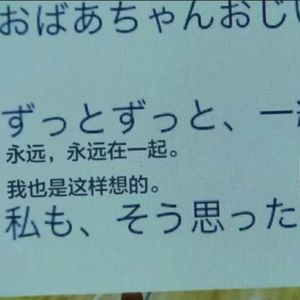 おばあちゃんおじい
ずっとずっと、一
永远，永远在一起。
我也是这样想的。
私も、そう思った